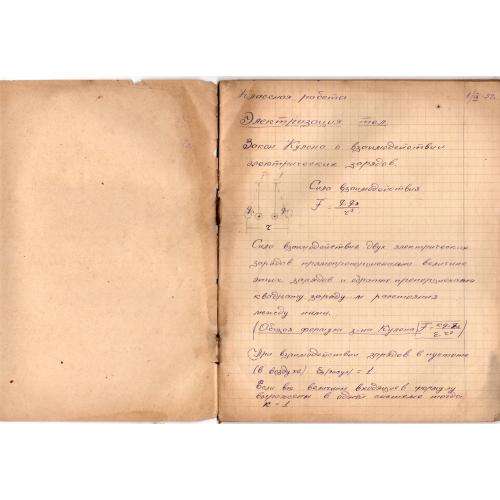 Классная работа 1/IX-52г.
Электризация тел.
Закон Кулона о взаимодействии
электрических зарядов.
Сила взаимодействия
F = q₁q₂/r²
q₁ q₂
r
Сила взаимодействия двух электрических
зарядов прямопропорциональна величине
этих зарядов и обратно пропорциональна
квадрату заряду м расстояния
между ними.
(Общая формула з-на Кулона
При взаимодействии зарядов в пустоте
(в воздухе) = 1
Если все величины входящие в формулу
выражены в одной системе тогда
к = 1